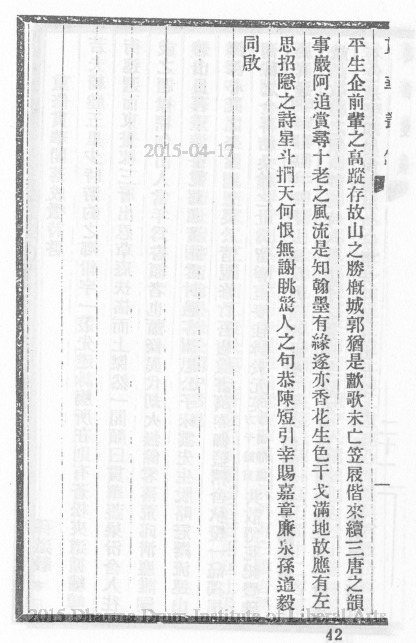 平生企前輩之高蹤存故山之勝槪城郭猶是歗歌未亡笠屐偕來續三唐之韻
事巖阿追賞尋十老之風流是知翰墨有緣遂亦香花生色干戈滿地故應有左
思招隱之詩星斗捫天何恨無謝眺驚人之句恭陳短引幸賜嘉章廉泉孫道毅
同啟
2015-04-17
2015 Dharma Drum Institute of Liberal Arts
42